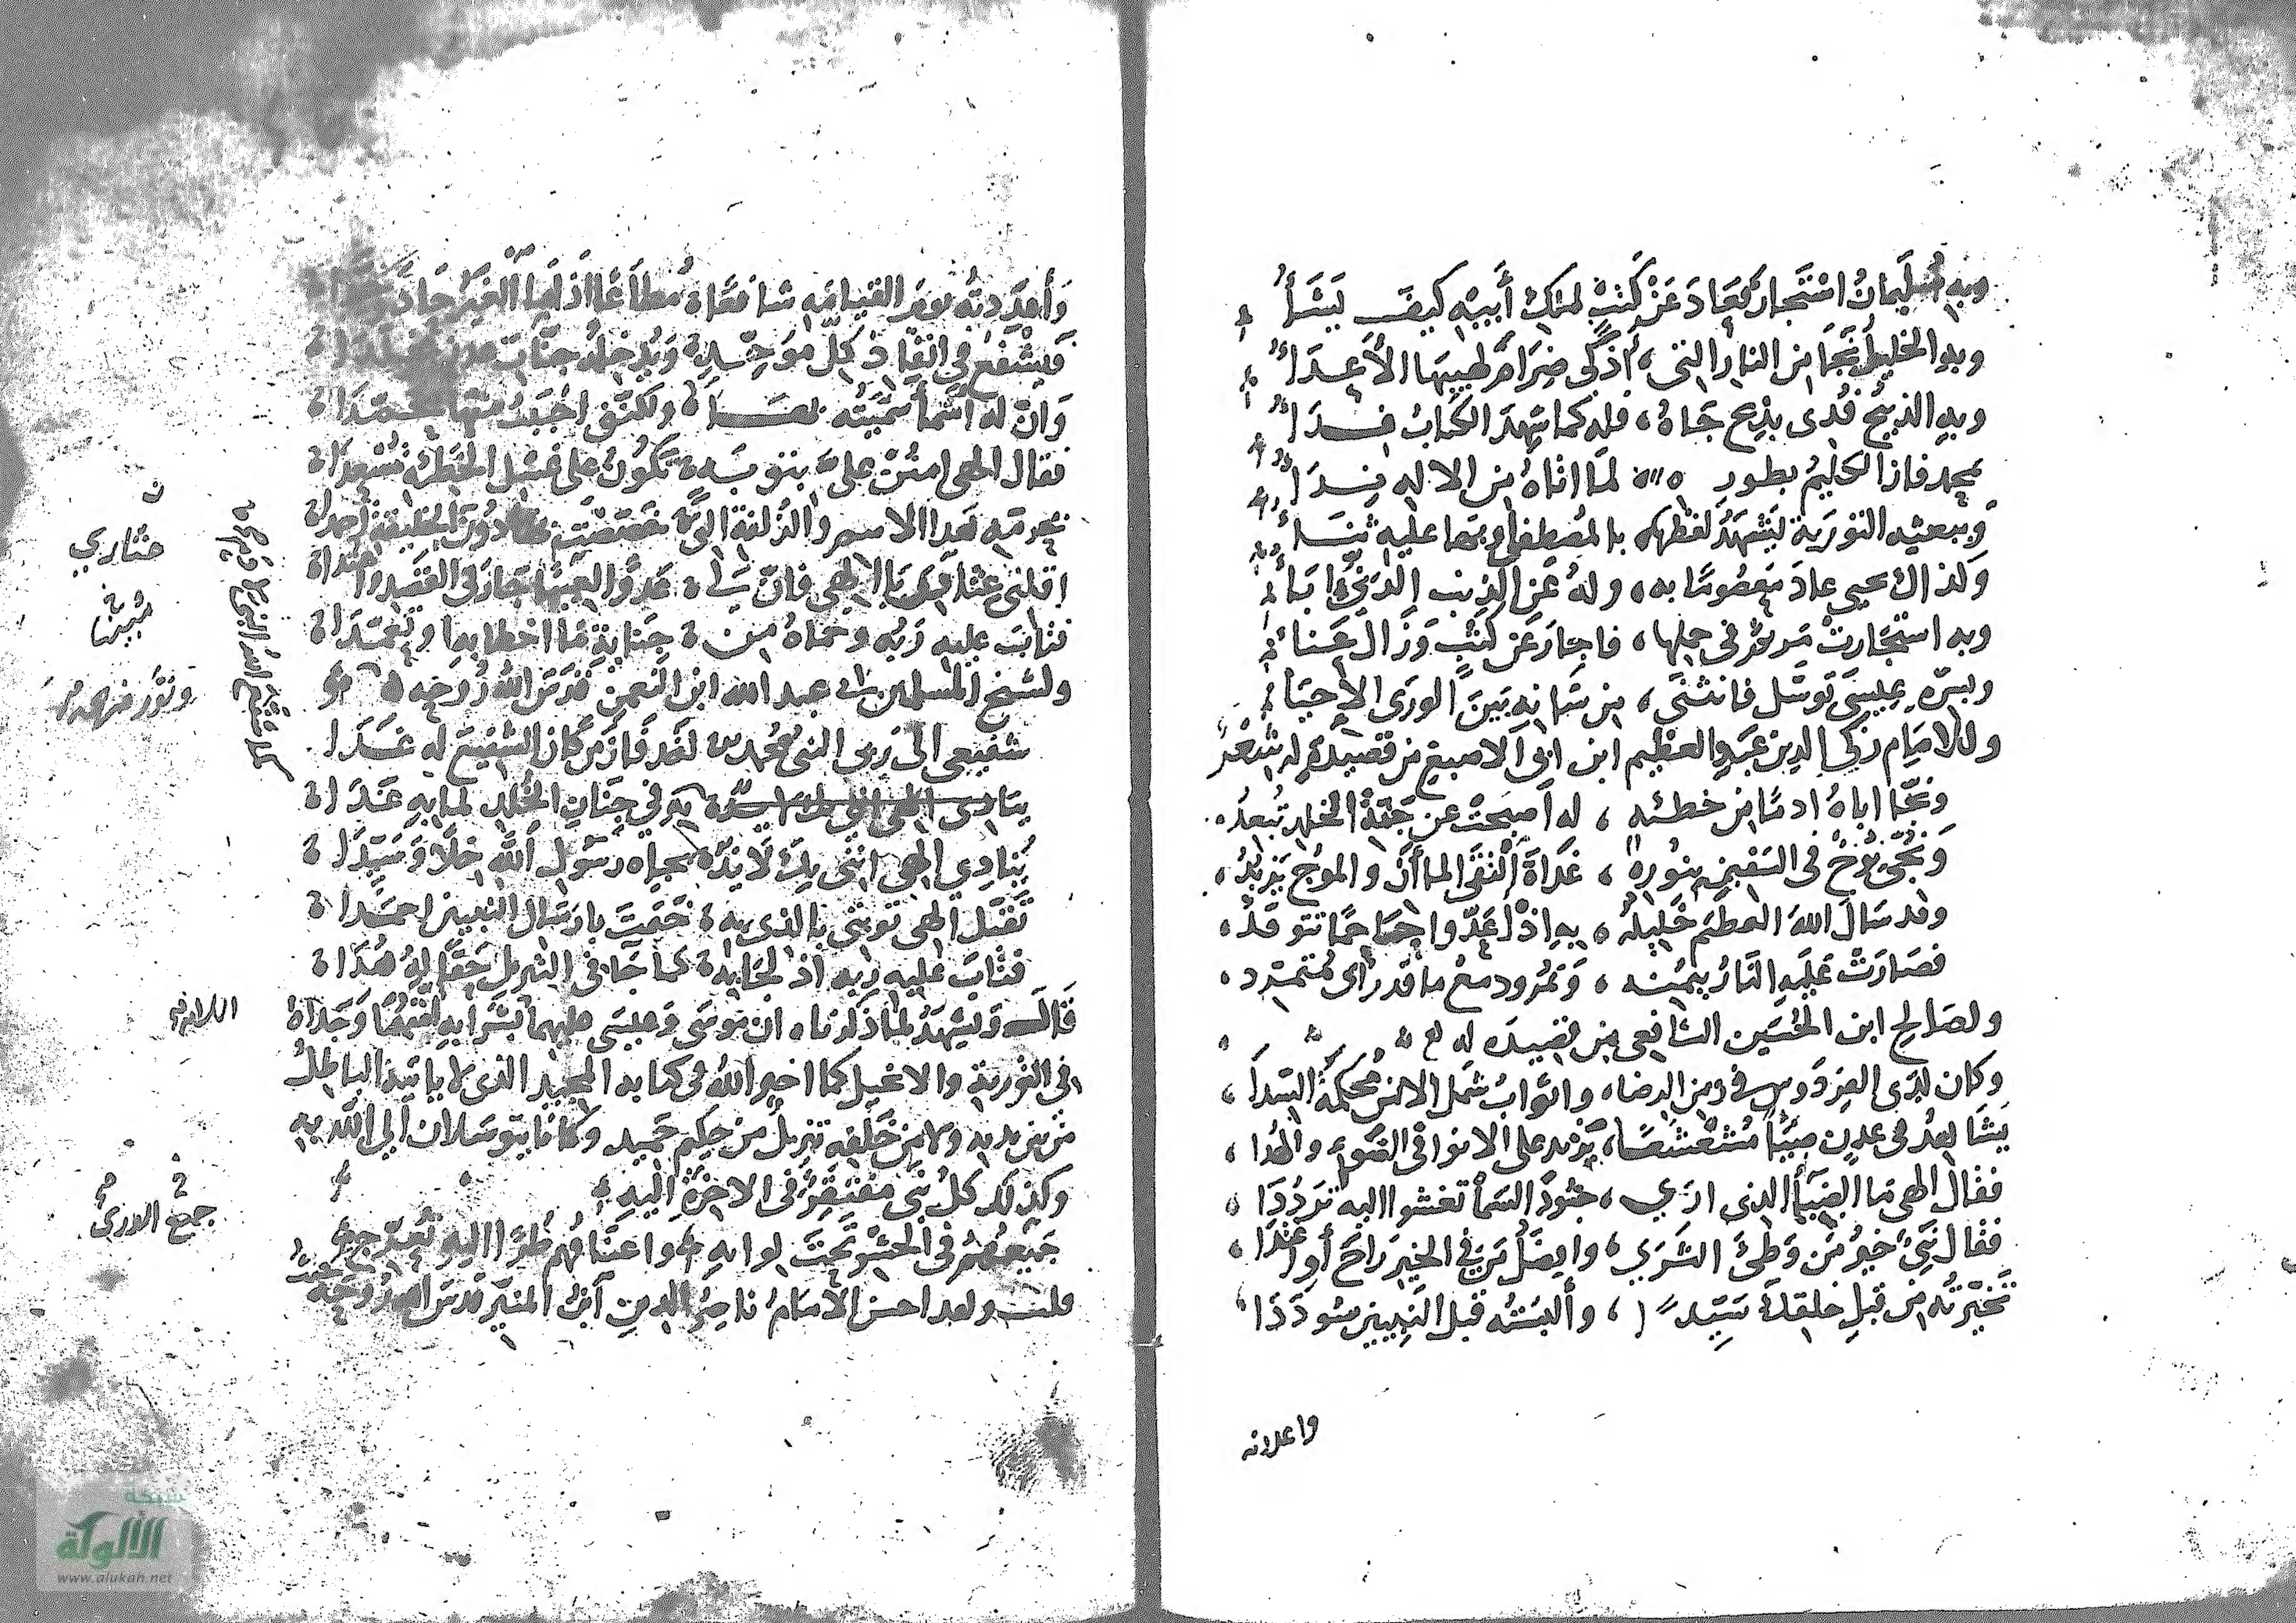 وبه سليمان استجار فعاد عن كثب لملك أبيه كيف يشأ
وبه الخليل نجا من النار التي، أذكى ضرام لهيبها الأعداء
وبه الذبيح فدى بذبح جاه، فله كما شهد الكتاب فداء
بمحمد فاز الكليم بطور لما اتاه من الاله نداء
وببعثه التورية يشهد لفظها بالمصطفى وبها عليه ثناء
وكذاك يحيى عاد معصوما به، وله عن الذنب الدني إباء
وبه استجارت مريم في حملها، فاجار عن كثب وزال عناء
وبسره عيسى توسل فانثنى، من شانه بين الورى الاحياء
وللامام زكي الدين عبد العظيم ابن ابي الاصبغ من قصيدة له شعر
ونجا اباه ادما من خطئه، له أصبحت عن جنة الخلد تبعد
ونجى نوح في السفينة بنوره، غداة التقى الماأن والموج يزبد
وقد سال الله العظيم خليله، به اذ أعدوا جاحما تتوقد
فصارت عليه النار بيمنه، ونمرود مع ما قد رأى متمرد
ولصالح ابن الحسين الشافعي من قصيده له
وكان لدى الفردوس في زمن الرضا، واثواب شمل الانس محكمة السدا
يشاهد في عدن ضيأ مشعشعا، يزيد على الانوار في الضوء والهدا
فقال الهي ما الضيأ الذي ارى، جنود السما تعشوا اليه ترددا
فقال نبي خير من وطئ الثرى، وافضل من في الخير راح أو اغتدا
تخيرته من قبل خلقك سيدا، وألبسته قبل النبيين سوددا
واعددته
وأعددته يوم القيامه شافعا مطاعا اذا ما الغير حاد
فيشفع في انقاذ كل موحد ويدخله جنات عدن مخلدا
وان له أسمأ سميته بها ولكنني احببت منها محمدا
فقال الهي امنن علي بتوبة تكون على غسل الخطئة مسعدا
بحرمة هذا الاسم والزلفة التي خصصت بها دون الخليقة أحمدا
اقلني عثاري يا الهي فان لي عدوا لعينا جار في القصد واعتدا
فتاب عليه ربه وحماه من جناية ما اخطا به وتعمدا
ولشيخ المسلمين ابي عبد الله ابن النعمن قدس الله روحه
شفيعي الى ربي النبي محمد لقد فاز من كان الشفيع له غدا
ينادي الهي في جنان الخلد لما به عدا
ينادي الهي انني بك لائذ بجاه رسول الله خلا وسيدا
تقبل الهي توبتي بالذي به ختمت بارسال النبيين احمدا
فتاب عليه ربه اذ لجا به كما جا في التنزيل حقا له هدا
قال ويشهد لما ذكرناه ان موسى وعيسى عليهما بشرا به لقتهما وجداه
في التورية والانجيل كما اخبر الله في كتابه المجيد الذي لا ياتيه الباطل
من بين يديه ولا من خلفه تنزيل من حكيم حميد وكانا يتوسلان الى الله به
وكذلك كل نبي مفتقر في الاخرة اليه
جميعهم في الحشر تحت لوايه واعناقهم طرا اليه
قلت ولقد احسن الامام ناصر الدين ابن المنير قدس الله روحه
عثاري
جميع الورى
شبكة
الألوكة
www.alukah.net